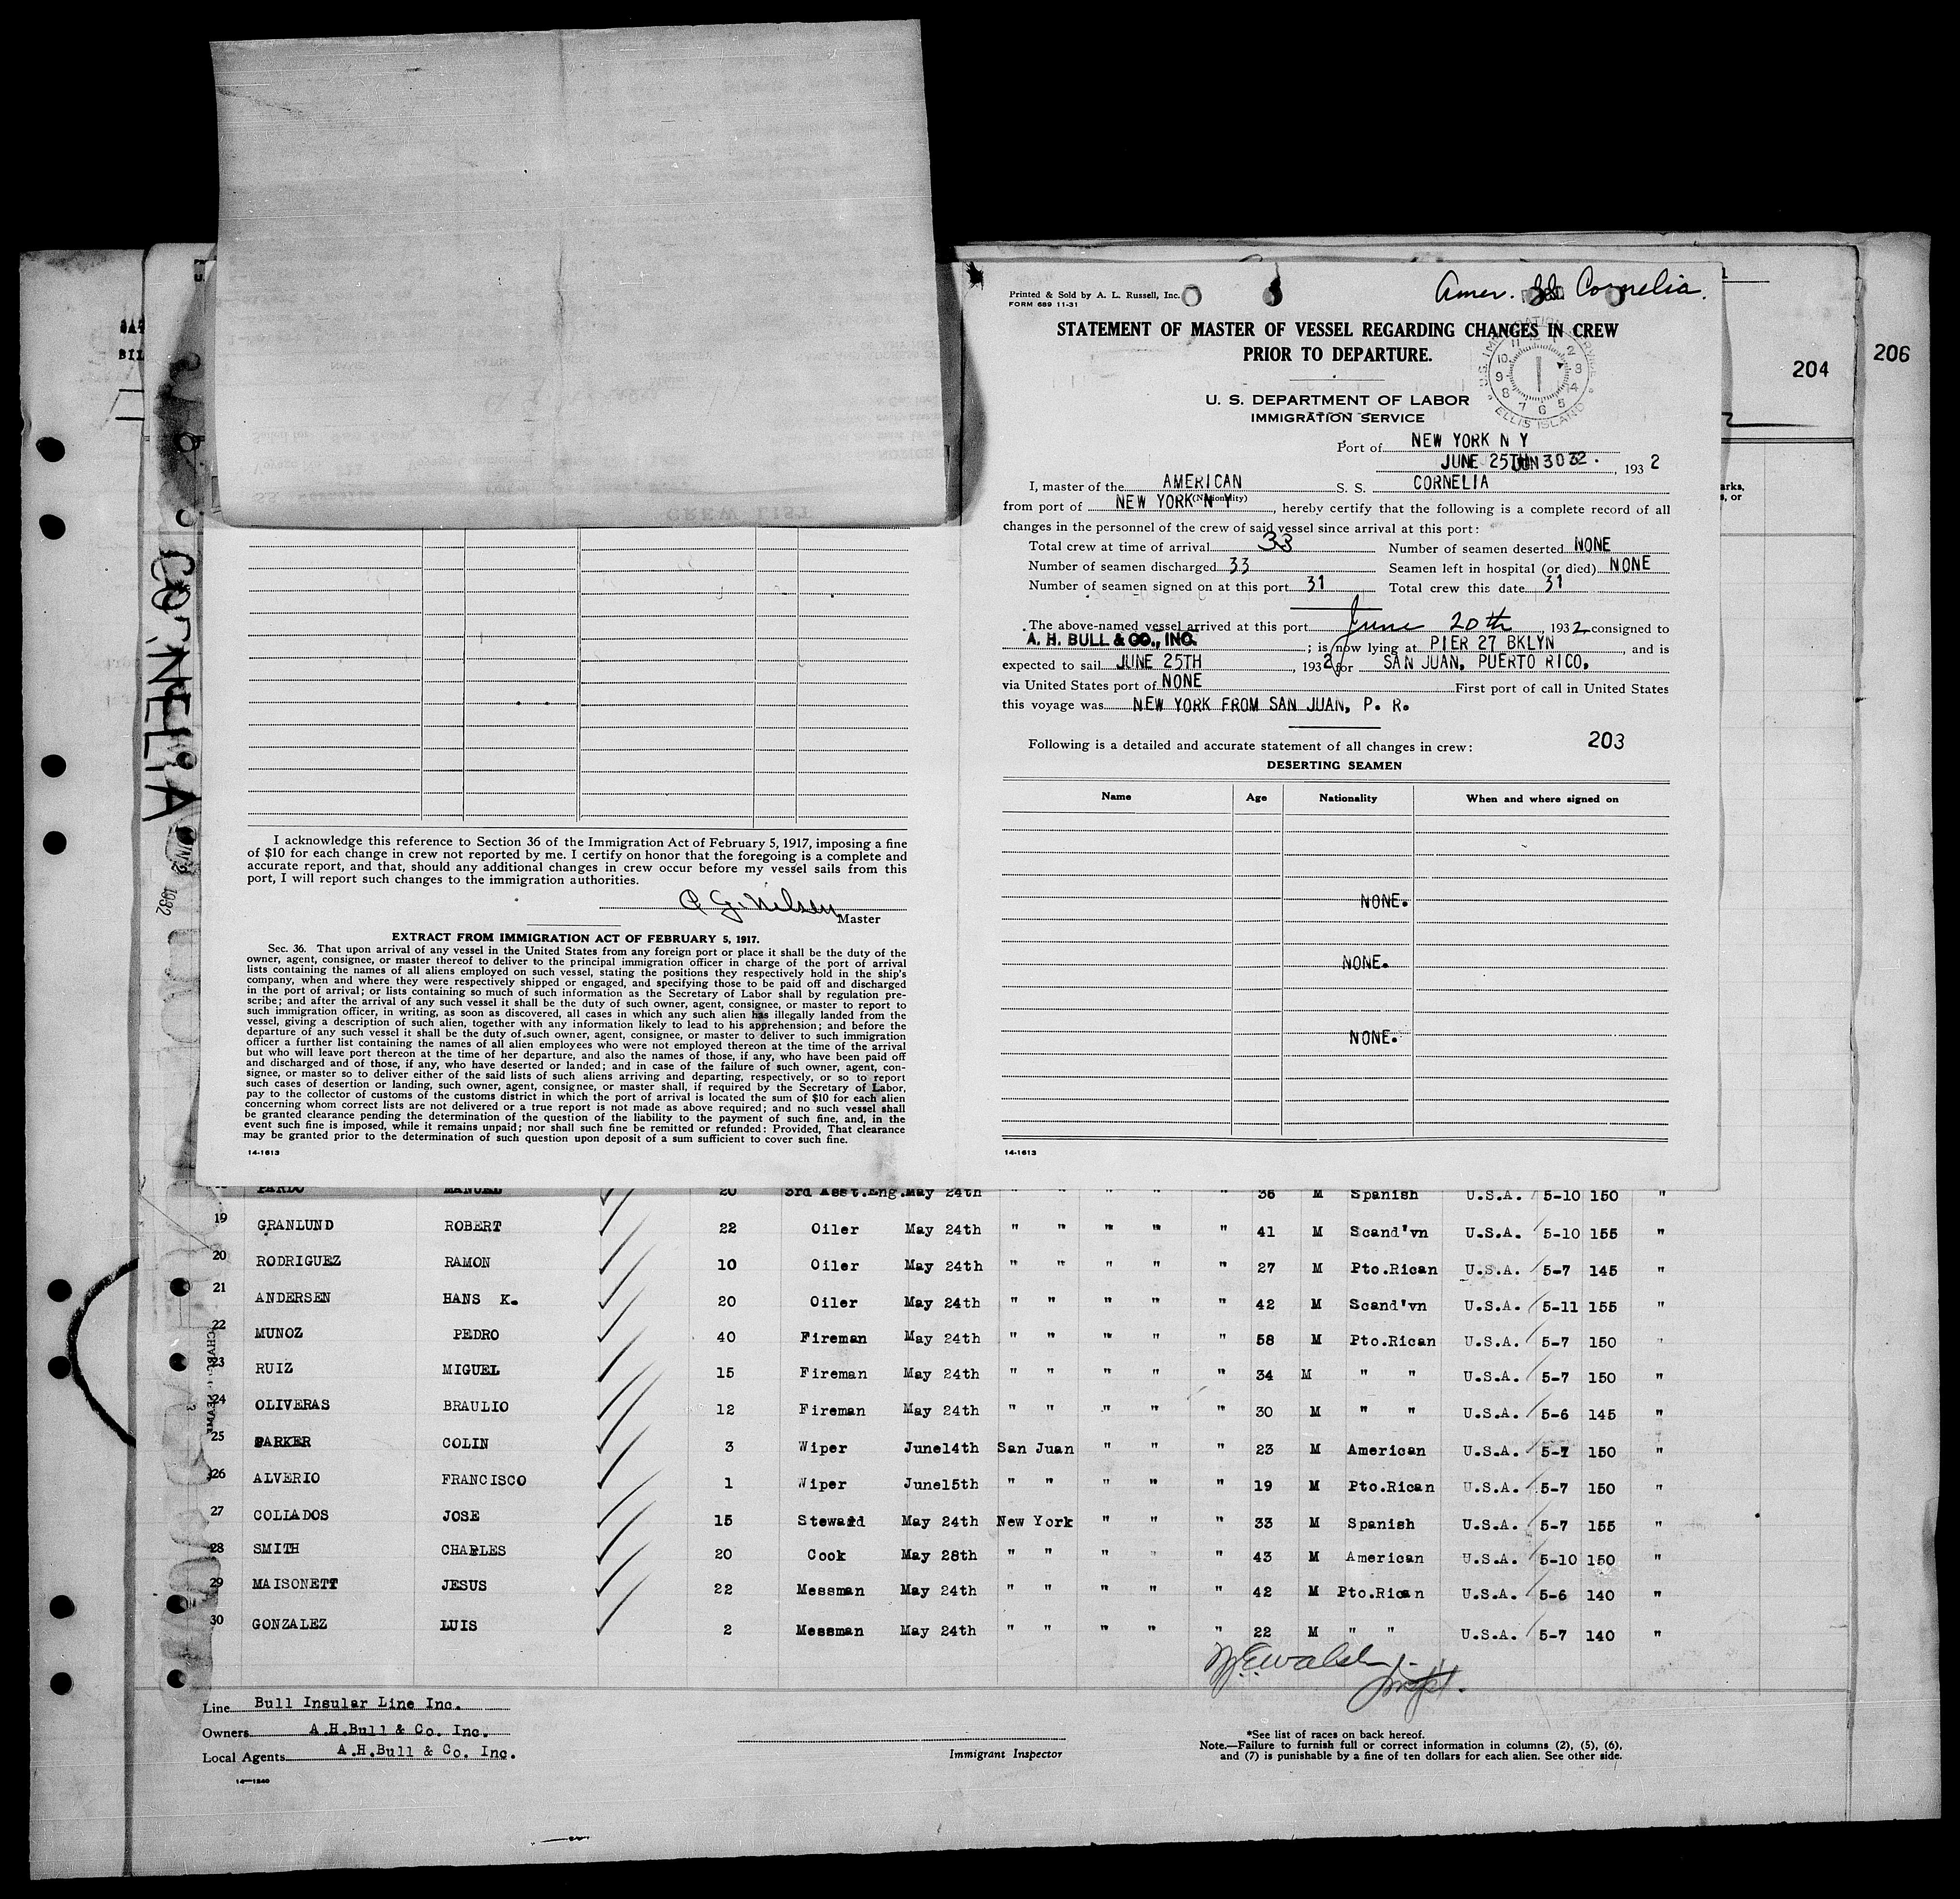 Amer. SS Cornelia.
Printed & Sold by A. L. Russell, Inc.
FORM 689 11-31
STATEMENT OF MASTER OF VESSEL REGARDING CHANGES IN CREW
PRIOR TO DEPARTURE.
U. S. DEPARTMENT OF LABOR
IMMIGRATION SERVICE
U.S. IMMIGRATION SERVICE
ELLIS ISLAND
204
206
Port of NEW YORK N Y
JUNE 25TH JUN 30 32. , 193 2
I, master of the AMERICAN S. S. CORNELIA
(Nationality)
from port of NEW YORK N Y, hereby certify that the following is a complete record of all
changes in the personnel of the crew of said vessel since arrival at this port:
Total crew at time of arrival 33 Number of seamen deserted NONE
Number of seamen discharged 33 Seamen left in hospital (or died) NONE
Number of seamen signed on at this port 31 Total crew this date 31
The above-named vessel arrived at this port June 20th, 1932 consigned to
A. H. BULL & CO., INC. ; is now lying at PIER 27 BKLYN, and is
expected to sail JUNE 25TH, 1932 for SAN JUAN, PUERTO RICO.
via United States port of NONE First port of call in United States
this voyage was NEW YORK FROM SAN JUAN, P. R.
Following is a detailed and accurate statement of all changes in crew: 203
DESERTING SEAMEN
Name Age Nationality When and where signed on
NONE.
NONE.
NONE.
14-1613
CREW LIST
CORNELIA
1932
I acknowledge this reference to Section 36 of the Immigration Act of February 5, 1917, imposing a fine
of $10 for each change in crew not reported by me. I certify on honor that the foregoing is a complete and
accurate report, and that, should any additional changes in crew occur before my vessel sails from this
port, I will report such changes to the immigration authorities.
C G. Nilsen
Master
EXTRACT FROM IMMIGRATION ACT OF FEBRUARY 5, 1917.
Sec. 36. That upon arrival of any vessel in the United States from any foreign port or place it shall be the duty of the
owner, agent, consignee, or master thereof to deliver to the principal immigration officer in charge of the port of arrival
lists containing the names of all aliens employed on such vessel, stating the positions they respectively hold in the ship's
company, when and where they were respectively shipped or engaged, and specifying those to be paid off and discharged
in the port of arrival; or lists containing so much of such information as the Secretary of Labor shall by regulation pre-
scribe; and after the arrival of any such vessel it shall be the duty of such owner, agent, consignee, or master to report to
such immigration officer, in writing, as soon as discovered, all cases in which any such alien has illegally landed from the
vessel, giving a description of such alien, together with any information likely to lead to his apprehension; and before the
departure of any such vessel it shall be the duty of such owner, agent, consignee, or master to deliver to such immigration
officer a further list containing the names of all alien employees who were not employed thereon at the time of the arrival
but who will leave port thereon at the time of her departure, and also the names of those, if any, who have been paid off
and discharged and of those, if any, who have deserted or landed; and in case of the failure of such owner, agent, con-
signee, or master so to deliver either of the said lists of such aliens arriving and departing, respectively, or so to report
such cases of desertion or landing, such owner, agent, consignee, or master shall, if required by the Secretary of Labor,
pay to the collector of customs of the customs district in which the port of arrival is located the sum of $10 for each alien
concerning whom correct lists are not delivered or a true report is not made as above required; and no such vessel shall
be granted clearance pending the determination of the question of the liability to the payment of such fine, and, in the
event such fine is imposed, while it remains unpaid; nor shall such fine be remitted or refunded: Provided, That clearance
may be granted prior to the determination of such question upon deposit of a sum sufficient to cover such fine.
14-1613
PARDO MANUEL 20 3rd Asst.Eng. May 24th " " " " " 36 M Spanish U.S.A. 5-10 150 "
19 GRANLUND ROBERT 22 Oiler May 24th " " " " " 41 M Scand'vn U.S.A. 5-10 155 "
20 RODRIGUEZ RAMON 10 Oiler May 24th " " " " " 27 M Pto.Rican U.S.A. 5-7 145 "
21 ANDERSEN HANS K. 20 Oiler May 24th " " " " " 42 M Scand'vn U.S.A. 5-11 155 "
22 MUNOZ PEDRO 40 Fireman May 24th " " " " " 58 M Pto.Rican U.S.A. 5-7 150 "
23 RUIZ MIGUEL 15 Fireman May 24th " " " " " 34 M " " U.S.A. 5-7 150 "
24 OLIVERAS BRAULIO 12 Fireman May 24th " " " " " 30 M " " U.S.A. 5-6 145 "
25 PARKER COLIN 3 Wiper June14th San Juan " " " 23 M American U.S.A. 5-7 150 "
26 ALVERIO FRANCISCO 1 Wiper June15th " " " " " 19 M Pto.Rican U.S.A. 5-7 150 "
27 COLLADOS JOSE 15 Steward May 24th New York " " " 33 M Spanish U.S.A. 5-7 155 "
28 SMITH CHARLES 20 Cook May 28th " " " " " 43 M American U.S.A. 5-10 150 "
29 MAISONETT JESUS 22 Messman May 24th " " " " " 42 M Pto.Rican U.S.A. 5-6 140 "
30 GONZALEZ LUIS 2 Messman May 24th " " " " " 22 M " " U.S.A. 5-7 140 "
Line Bull Insular Line Inc.
Owners A.H.Bull & Co. Inc.
Local Agents A.H.Bull & Co. Inc.
14-1240
Immigrant Inspector
*See list of races on back hereof.
Note.—Failure to furnish full or correct information in columns (2), (5), (6),
and (7) is punishable by a fine of ten dollars for each alien. See other side.